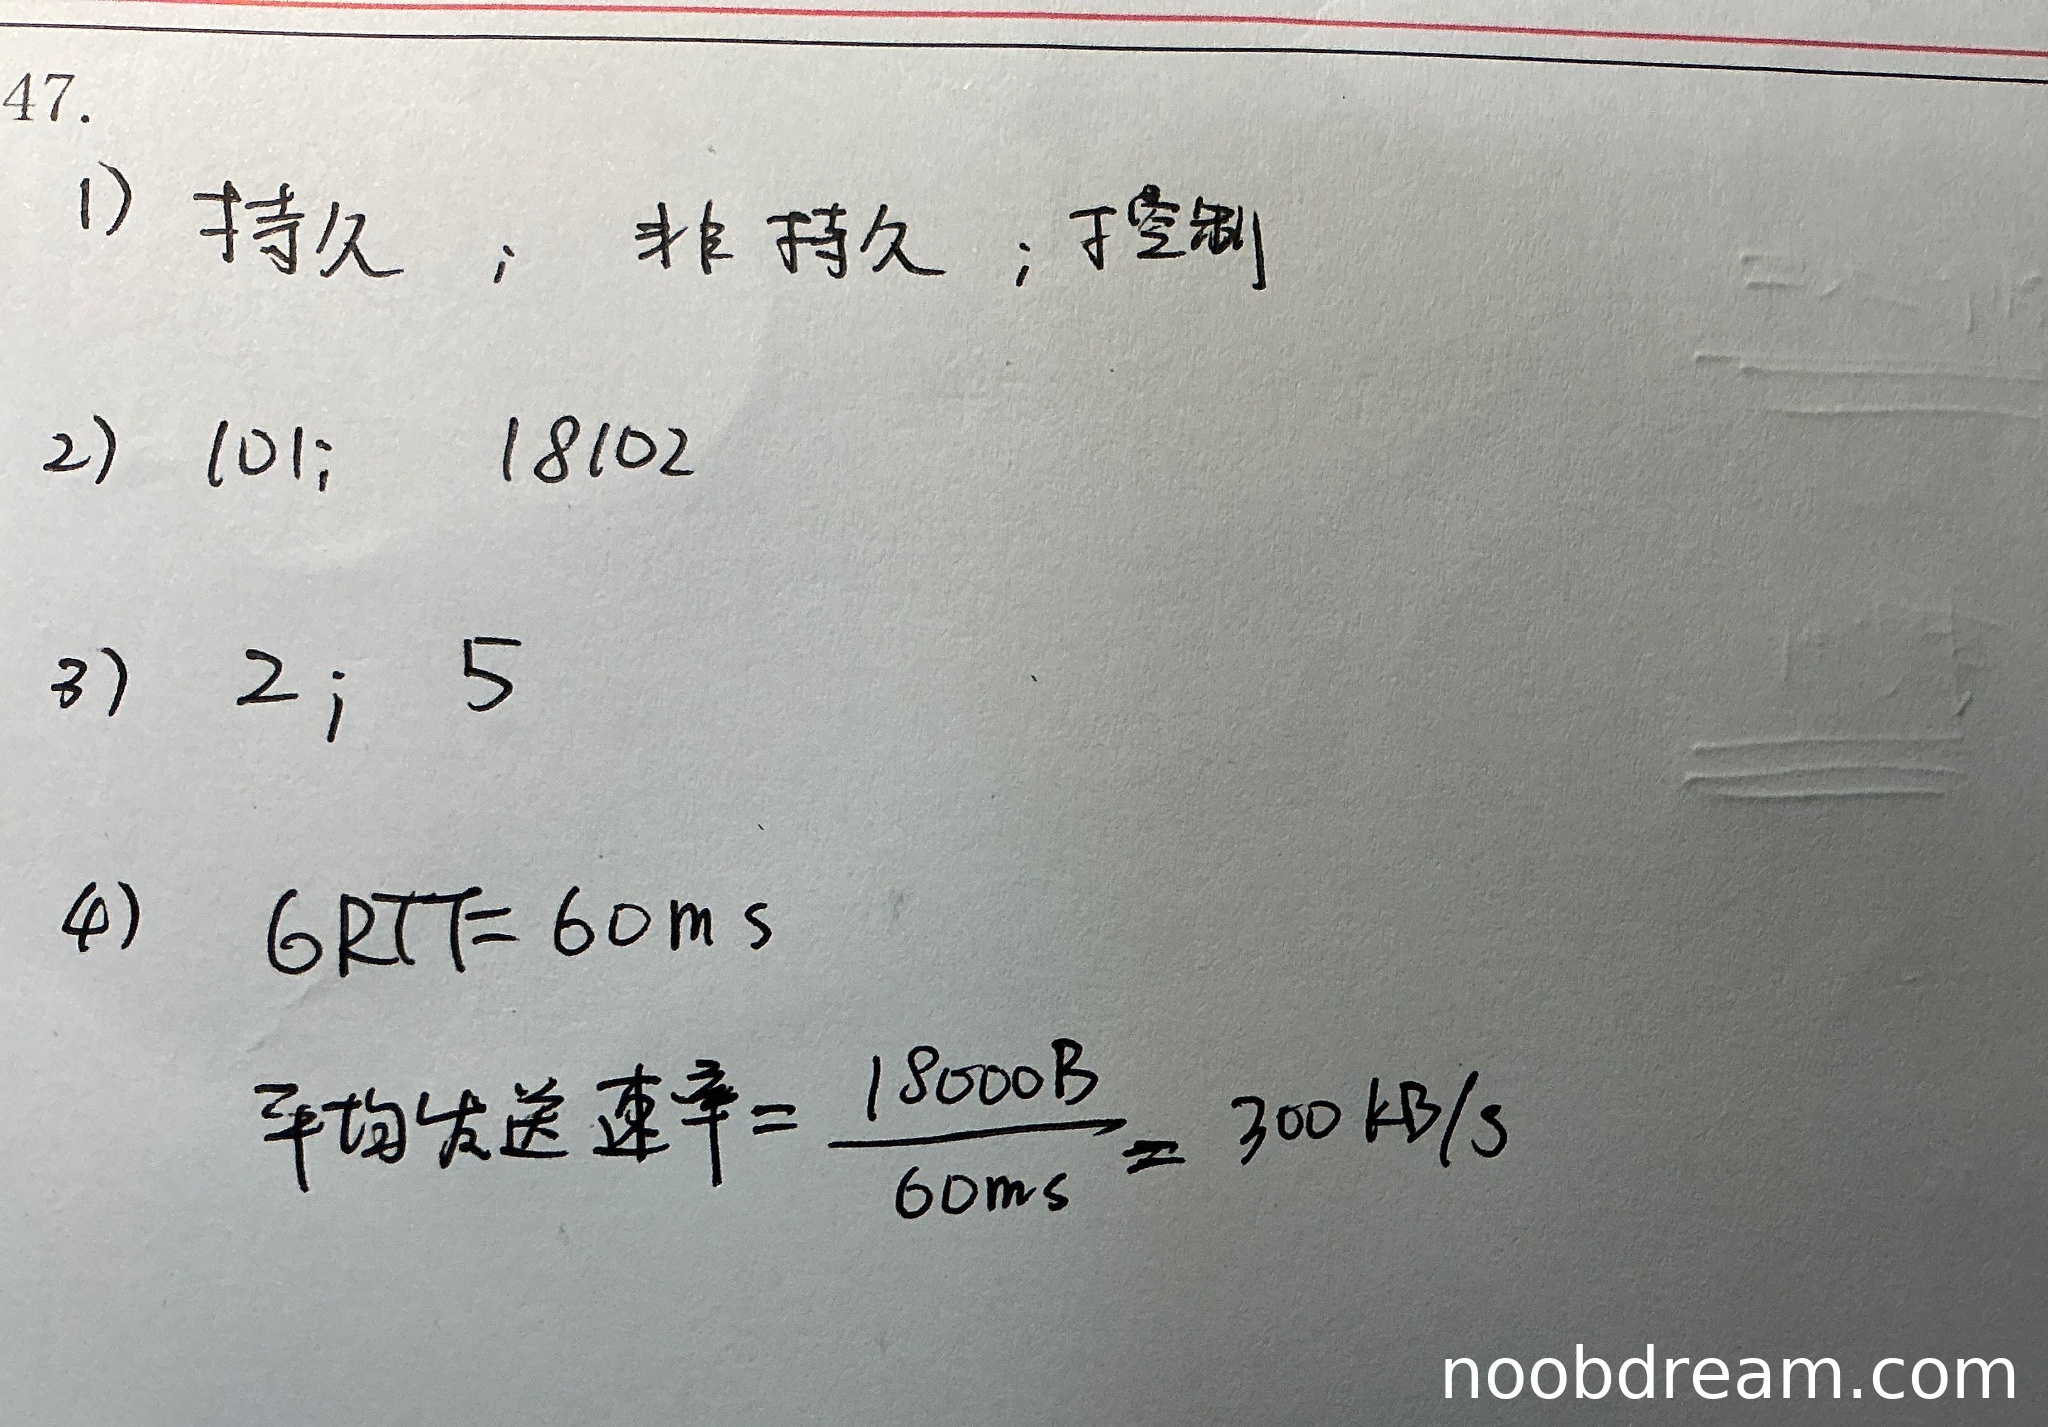 47.
1) 持久 ; 非持久 ; 控制
2) 101; 18102
3) 2 ; 5
4) 6RTT = 60ms
平均发送速率 = 18000B / 60ms = 300 kB/s
noobdream.com